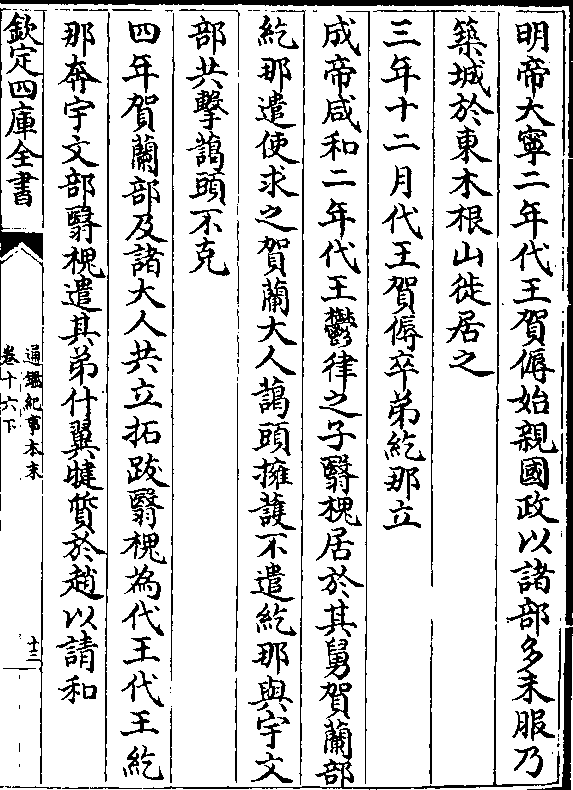 明帝大寧二年代王賀傉始親國政以諸部多未服乃
築城於東木根山徙居之
三年十二月代王賀傉卒弟紇那立
成帝咸和二年代王鬱律之子翳槐居於其舅賀蘭部
紇那遣使求之賀蘭大人藹頭擁護不遣紇那與宇文
部共擊藹頭不克
四年賀蘭部及諸大人共立拓跋翳槐為代王代王紇
那奔宇文部翳槐遣其弟什翼犍質於趙以請和
欽定四庫全書
通鑑紀事本末
卷十六下
十三